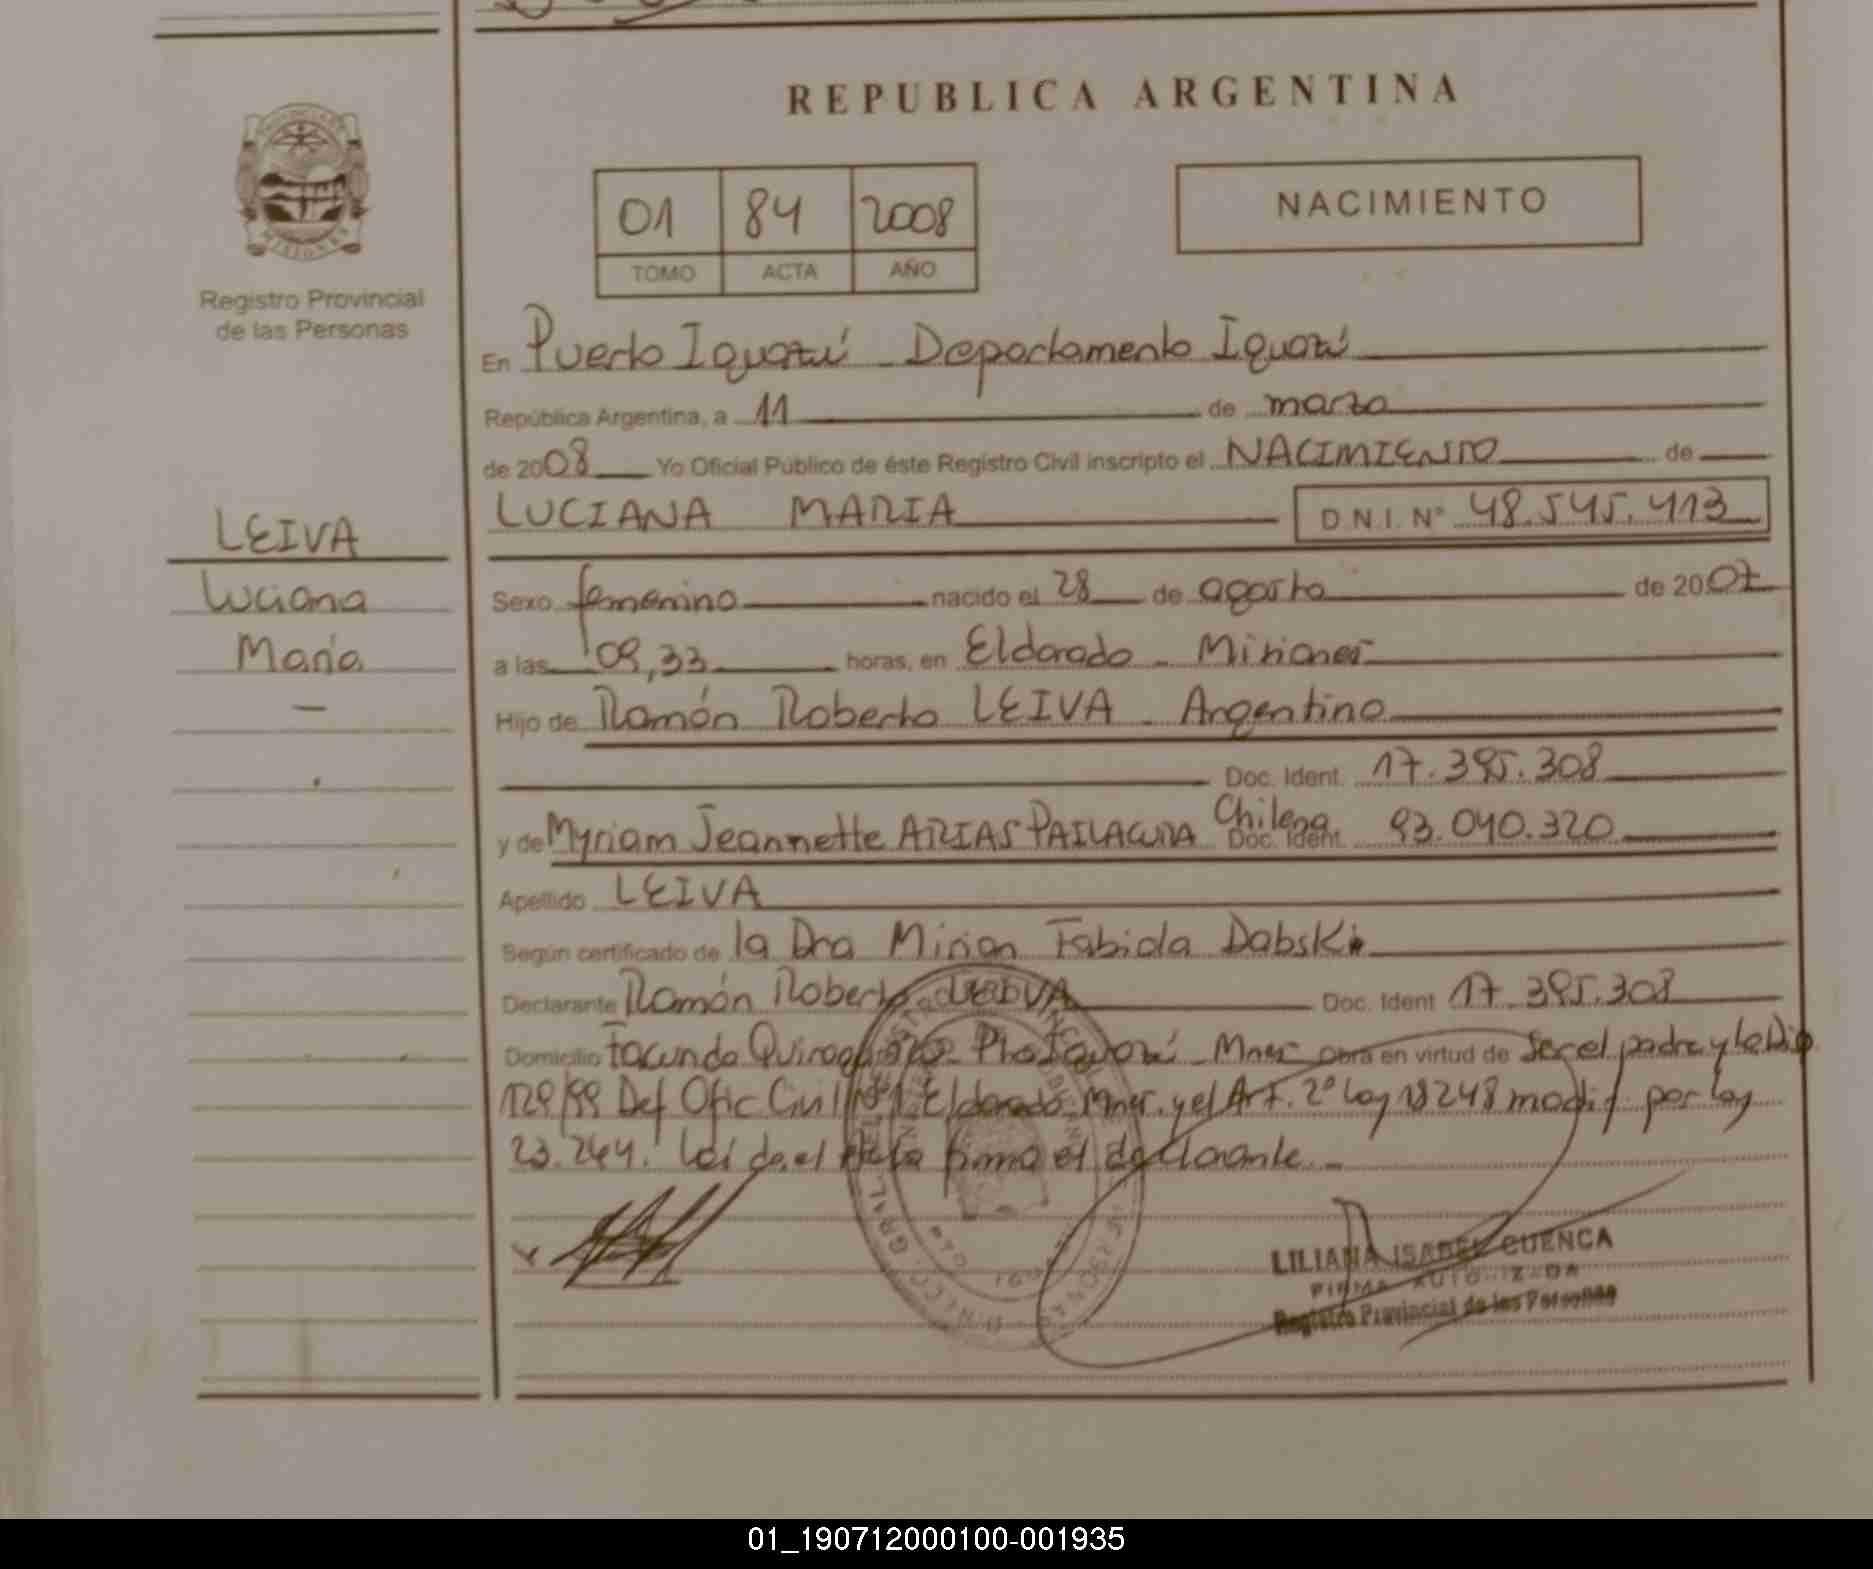 REPUBLICA ARGENTINA
01 84 2008
TOMO ACTA AÑO
NACIMIENTO
MISIONES
Registro Provincial
de las Personas
LEIVA
Luciana
María
En Puerto Iguazú - Departamento Iguazú
República Argentina, a 11 de marzo
de 2008 Yo Oficial Público de éste Registro Civil inscripto el NACIMIENTO de
LUCIANA MARIA D.N.I. Nº 48.545.413
Sexo femenino nacido el 28 de agosto de 2007
a las 09,33 horas, en Eldorado - Misiones
Hijo de Ramón Roberto LEIVA - Argentino
Doc. Ident. 17.395.308
y de Myriam Jeannette ARIAS PAILACURA Chilena Doc. Ident. 93.040.320
Apellido LEIVA
Según certificado de la Dra Mirian Fabiola Dabski
Declarante Ramón Roberto LEIVA Doc. Ident 17.395.308
Domicilio Facundo Quiroga Pto Iguazú - Mnes obra en virtud de ser el padre y la Dip
129/99 Def Ofic Civil Nº1 Eldorado Mnes. y el Art. 2º Ley 18248 modif por ley
23.264. Leída el acta firma el declarante. -
LILIANA ISABEL CUENCA
FIRMA AUTORIZADA
Registro Provincial de las Personas
01_190712000100-001935